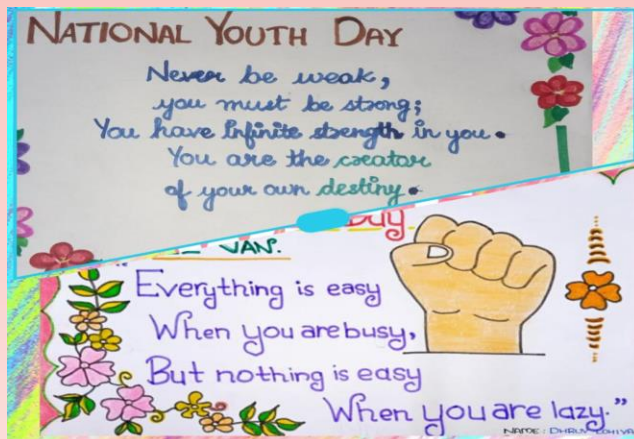 NATIONAL YOUTH DAY
Never be weak,
you must be strong;
You have Infinite strength in you.
You are the creator
of your own destiny.
Day
VAN.
"Everything is easy
When you are busy,
But nothing is easy
When you are lazy."
NAME: DHRUV